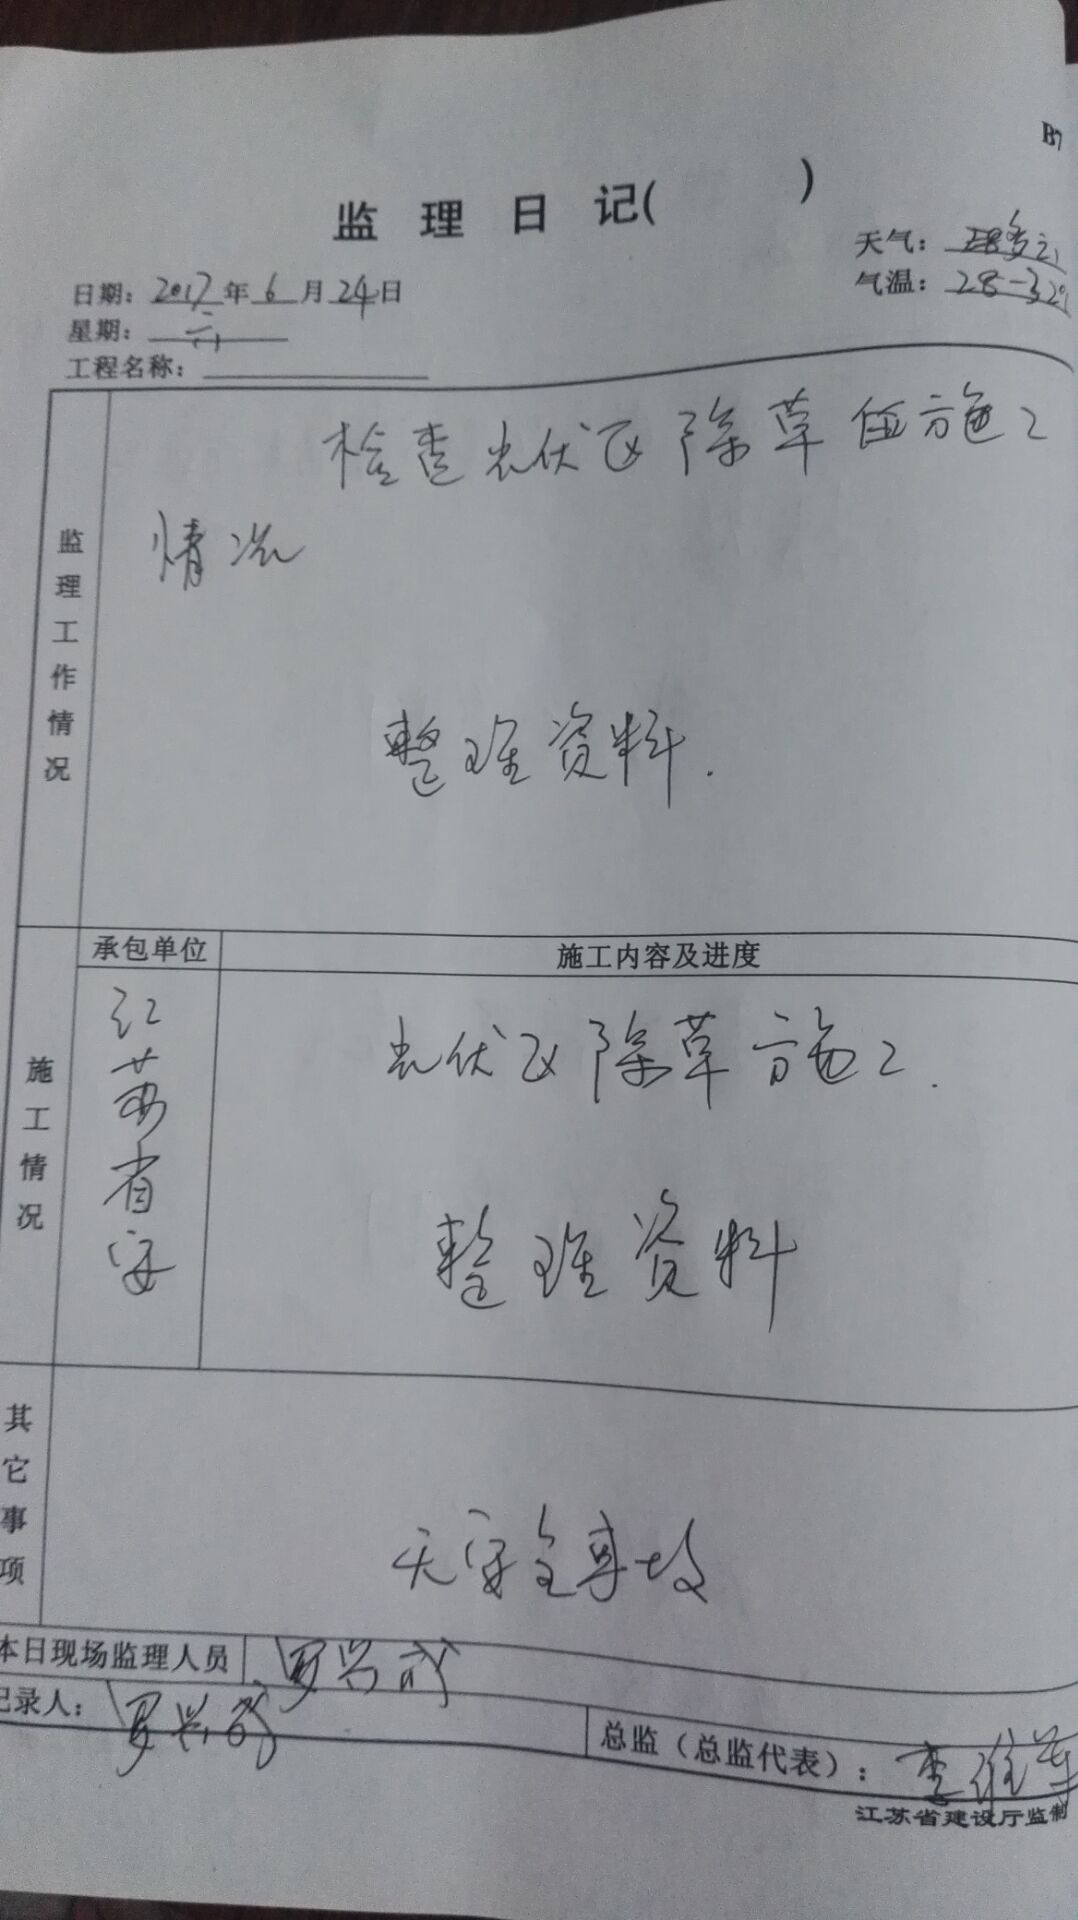 B7
监 理 日 记( )
天气: 多云
日期: 2017年 6 月 24日
气温: 28-32℃
星期: 六
工程名称:
监理工作情况
检查光伏区除草 施工
情况
整理资料.
承包单位
施工内容及进度
施工情况
江苏省安
光伏区除草施工.
整理资料
其它事项
无安全事故
本日现场监理人员 罗兴武
记录人: 罗兴武
总监(总监代表): 李维
江苏省建设厅监制